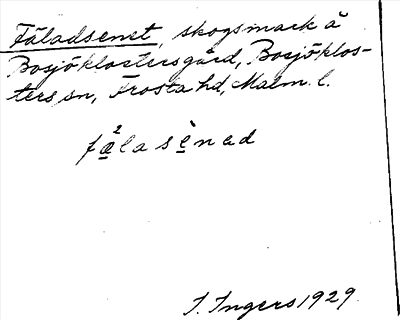 Fäladsenet, skogsmark å
Bosjöklostersgård, Bosjöklos-
ters sn, Frosta hd, Malm. l.
fæ²lasènad
I. Ingers 1929.